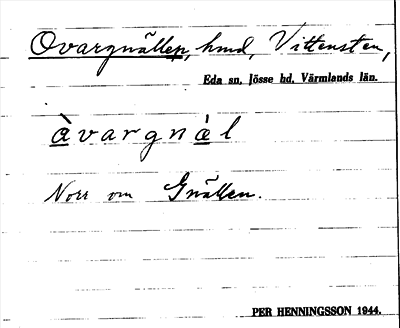 Ovargnällen, hmd, Vittensten,
Eda sn, Jösse hd. Värmlands län.
àvargnàl
Norr om Gnällen.
PER HENNINGSSON 1944.